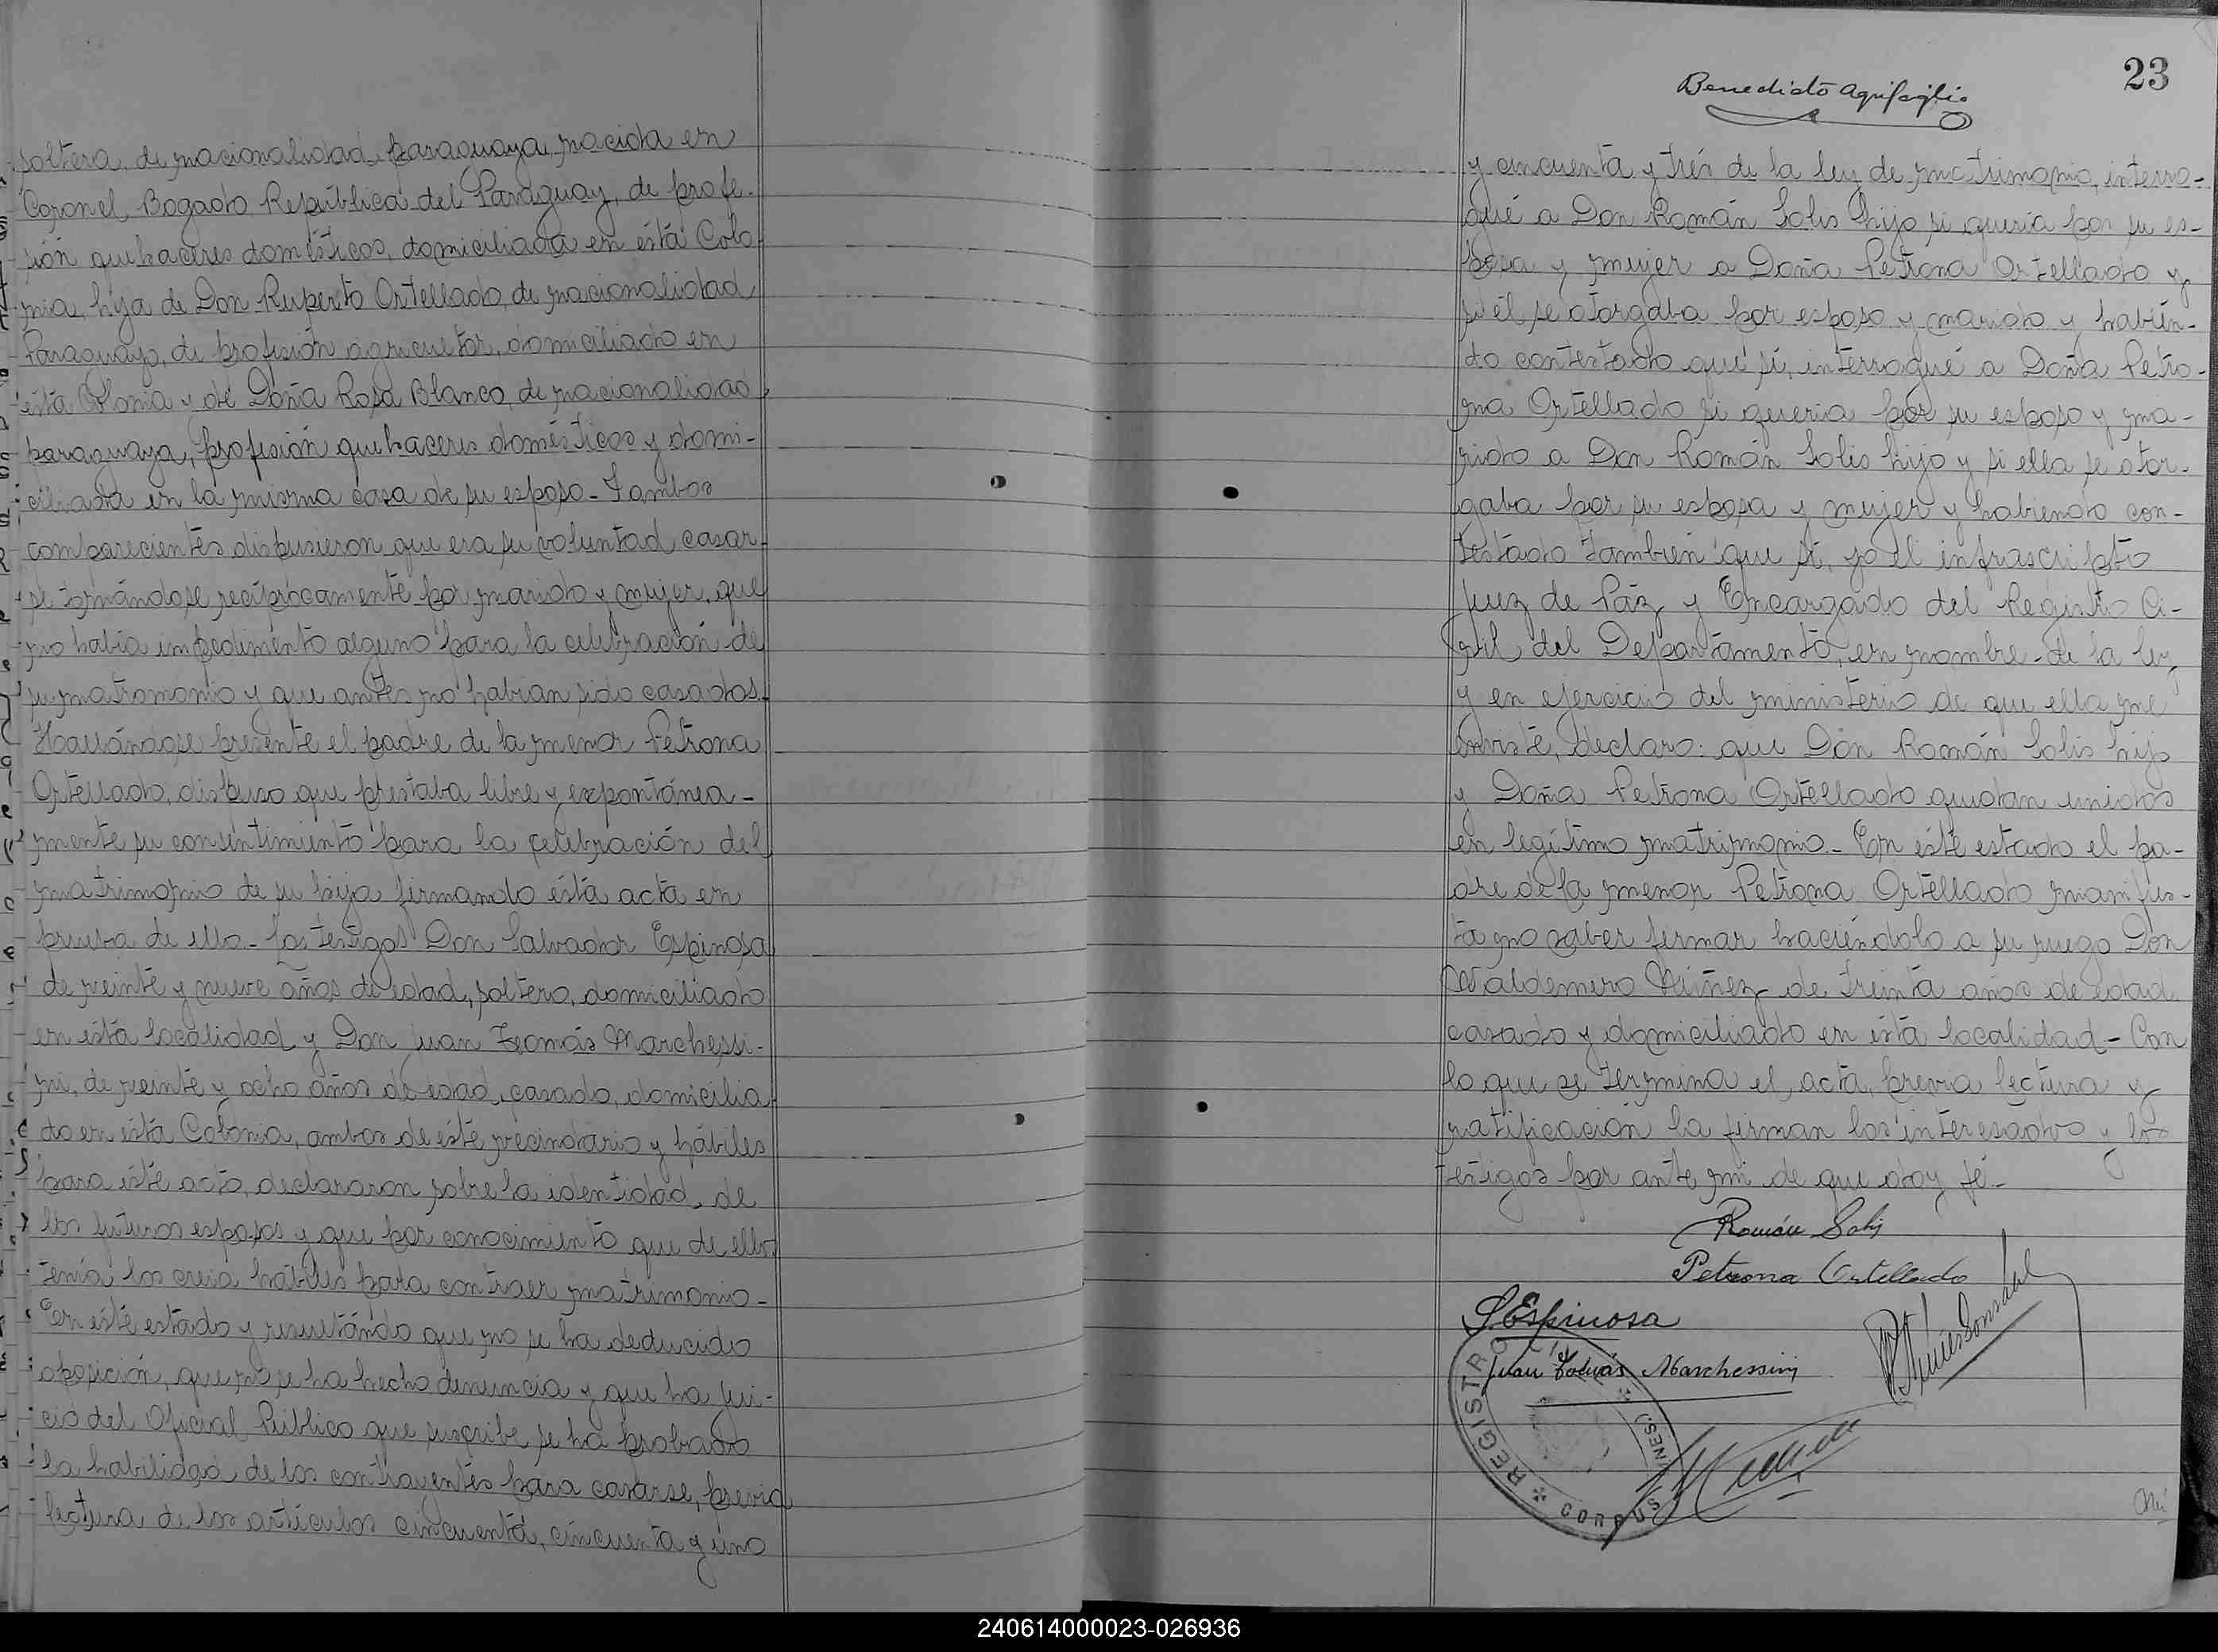 soltera, de nacionalidad paraguaya, nacida en
Coronel Bogado República del Paraguay, de profe-
sión quehaceres domésticos, domiciliada en ésta Colo-
nia, hija de Don Ruperto Ortellado, de nacionalidad
Paraguayo, de profesión agricultor, domiciliado en
ésta Colonia y de Doña Rosa Blanco, de nacionalidad
paraguaya, profesión quehaceres domésticos y domi-
ciliada en la misma casa de su esposo - Y ambos
comparecientes dispusieron que era su voluntad casar-
se tomándose recíprocamente por marido y mujer, que
no había impedimento alguno para la celebración de
su matromonio y que antes no habian sido casados.
Hallándose presente el padre de la menor Petrona
Ortellado, dispuso que prestaba libre y expontánea-
mente su consintimiento para la celebración del
matrimonio de su hija firmando ésta acta en
prueba de ello - Los testigos Don Salvador Espinosa
de veinte y nueve años de edad, soltero, domiciliado
en ésta localidad y Don Juan Tomás Marchessi-
ni, de veinte y ocho años de edad, casado, domicilia-
do en ésta Colonia, ambos de éste vecindario y hábiles
para éste acto, declararon sobre la identidad de
los futuros esposos y que por conocimiento que de ellos
tenía los creía hábiles para contraer matrimonio -
En éste estado y resultándo que no se ha deducido
oposición, que no se ha hecho denuncia y que ha jui-
cio del Oficial Público que suscribe se ha probado
la habilidad de los contrayentes para casarse, previa
lectura de los artículos cincuenta, cincuenta y uno
23
Benedicto Aquifoglio
y cincuenta y trés de la ley de matrimonio, interro-
gué a Don Román Solis hijo si queria por su es-
posa y mujer a Doña Petrona Ortellado y
si él se otorgaba por esposo y marido y habién-
do contestado que sí, interrogué a Doña Petro-
na Ortellado si queria por su esposo y ma-
rido a Don Román Solis hijo y si ella se otor-
gaba por su esposa y mujer y habiendo con-
testado también que sí, yo el infrascripto
Juez de Páz y Encargado del Registro Ci-
vil del Departamento, en nombre de la ley
y en ejercicio del ministerio de que ella me
inviste, declaro: que Don Román Solis hijo
y Doña Petrona Ortellado quedan unidos
en legítimo matrimonio - En éste estado el pa-
dre de la menor Petrona Ortellado manifies-
ta no saber firmar haciéndolo a su ruego Don
Waldemero de treinta años de edad
casado y domiciliado en ésta localidad - Con
lo que se termina el acta, previa lectura y
ratificación la firman los interesados y los
testigos por ante mi de que doy fé -
Román Solis
Petrona Ortellado
S. Espinosa
Juan Tomás Marchessini
REGISTRO CIVIL
CORPUS
240614000023-026936